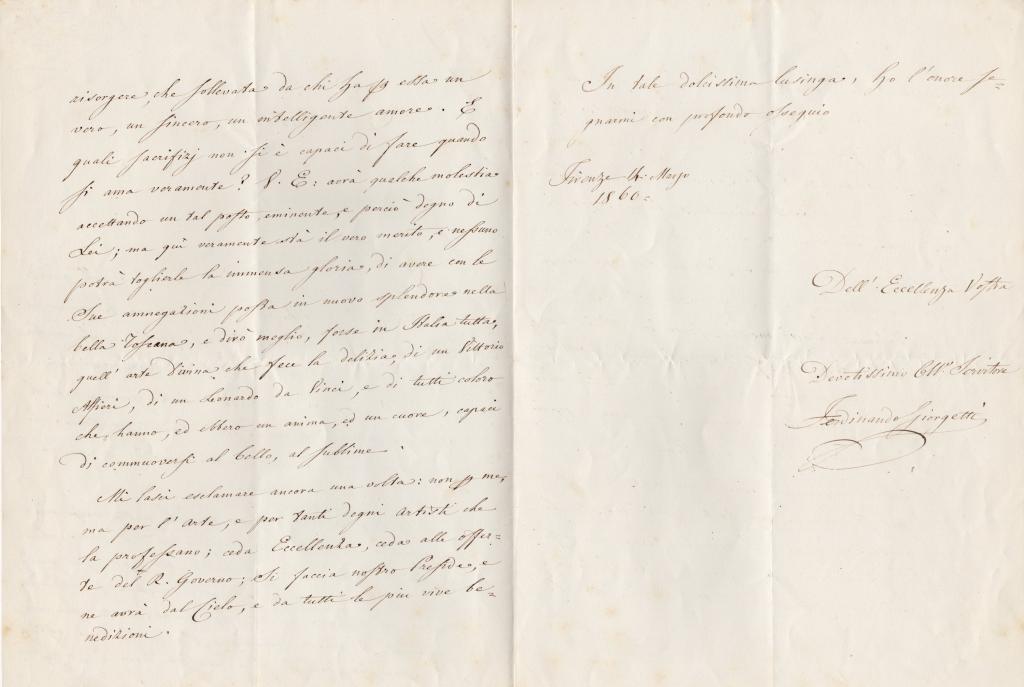 risorgere, che sollevata da chi ha p essa un
vero, un sincero, un intelligente amore. E
quali sacrifizj non si è capaci di fare quando
si ama veramente? V. E: avrà qualche molestia
accettando un tal posto, eminente, e perciò degno di
Lei; ma quì veramente stà il vero merito, e nessuno
potrà toglierle la immensa gloria, di avere con le
Sue amnegazioni posta in nuovo splendore nella
bella Toscana, e dirò meglio, forse in Italia tutta,
quell' arte divina che fece la delizia, di un Vittorio
Alfieri, di un Leonardo da Vinci, e di tutti coloro
che, hanno, ed ebbero un anima, ed un cuore, capaci
di commuoversi al bello, al sublime.
Mi lasci esclamare ancora una volta: non p me,
ma per l' arte, e per tanti degni artisti che
la professano; ceda Eccellenza, ceda alle offer-
te del R. Governo; Si faccia nostro Preside, e
ne avrà dal Cielo, e da tutti le piu vive be-
nedizioni.
In tale dolcissima lusinga, ho l'onore se=
gnarmi con profondo ossequio
Firenze Marzo
1860=
Dell' Eccellenza Vostra
Devotissimo Obb. Servitore
Ferdinando Giorgetti